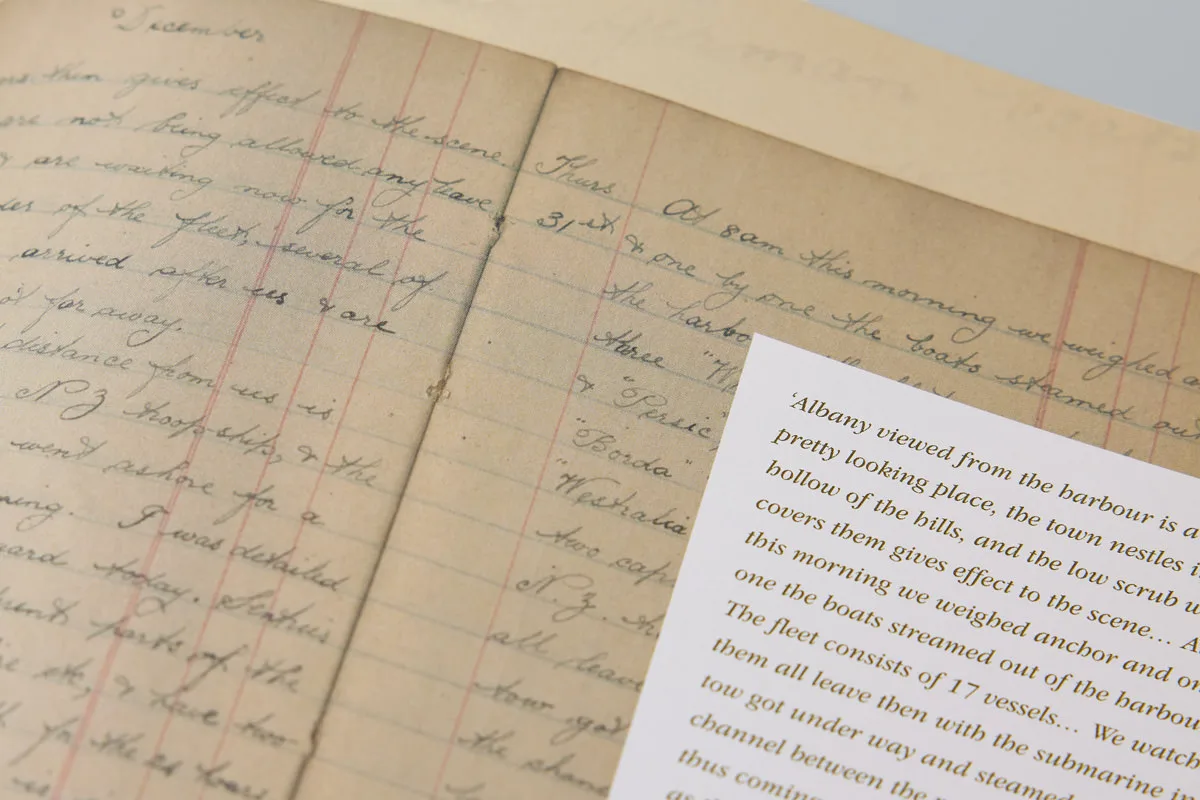 December
then gives effect to the scene.
are not being allowed any leave,
& are waiting now for the
of the fleet, several of
arrived after us & are
far away.
distance from us is
N Z troop-ship, & the
went ashore for a
I was detailed
today. Sentries
parts of the
etc, & have two
for the 24 hours
is
Thurs At 8am this morning we weighed
31st & one by one the boats steamed out
the
three
& "Persic"
"Borda"
"Westralia"
two
N.Z.
all leave
tow got
the
'Albany viewed from the harbour is a
pretty looking place, the town nestles
hollow of the hills, and the low scrub
covers them gives effect to the scene...
this morning we weighed anchor and
one the boats streamed out of the
The fleet consists of 17 vessels... We
them all leave then with the submarine in
tow got under way and steamed
channel between the
thus coming
as